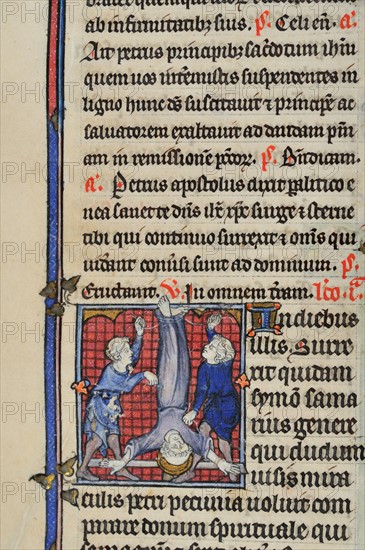 ab infirmitatibus suis. ps. Celi en̄. a.
Ait petrus principibꝫ sac̄dotum ih̄m
quem uos int̄emistis suspendentes in
ligno hunc ds̄ suscitauit ⁊ principē ac
saluatorem exaltauit ad dandam pn̄i
am in remissionē pc̄c̄oꝝ. ps. Bn̄dicam.
a. Petrus apostolus dixit palitico e
nea sanet te dn̄s ih̄c xp̄c surge ⁊ sterne
tibi qui continuo surrexit ⁊ om̄s qui
uid̄ant conūsi sunt ad dominum. ps.
Exaudiant. V. In omnem t̄ram. lc̄o. i.
In diebus
illis. Surre
xit quidam
symō nōm̄ sama
rius genere
qui dudum
uisis mira
culis petri pecunia uoluit com
parare donum spirituale qui